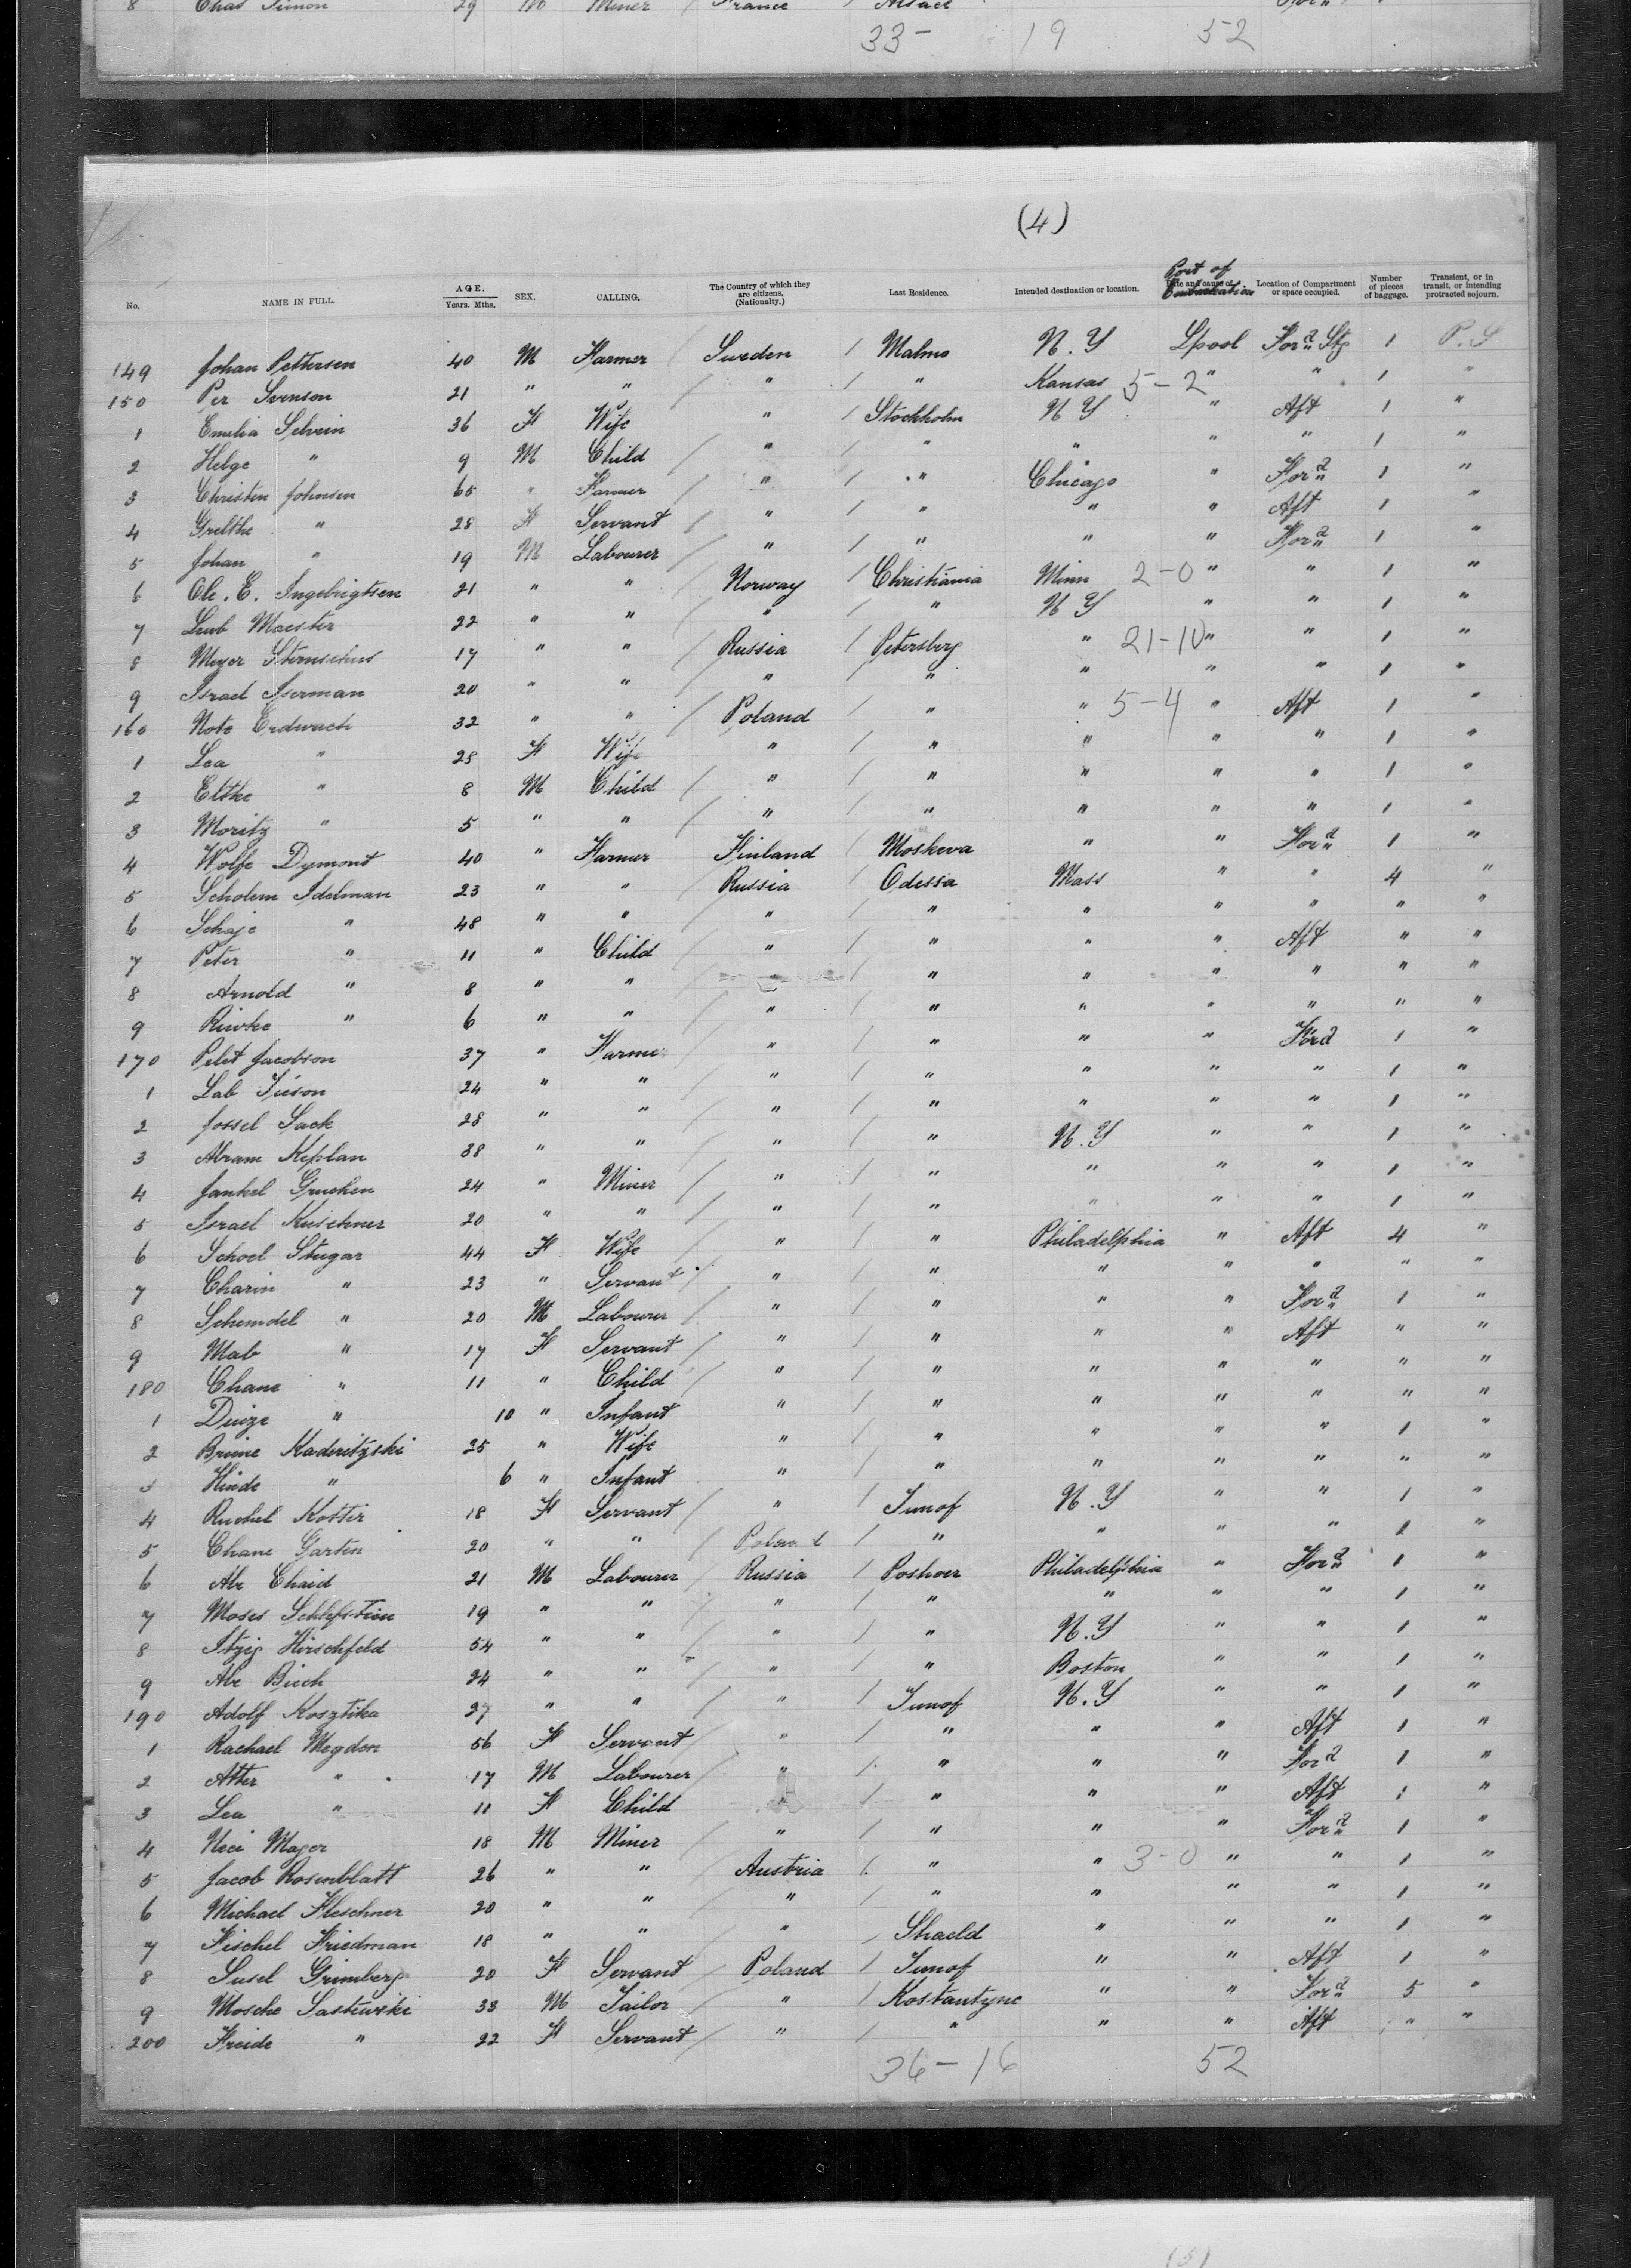 8 Chas Simon 29 Miner France Alsace
33 - 19 52
(4)
No. NAME IN FULL. AGE. Years. Mths. SEX. CALLING. The Country of which they are citizens. (Nationality.) Last Residence. Intended destination or location. Port of Embarkation Date and cause of Location of Compartment or space occupied. Number of pieces of baggage. Transient, or in transit, or intending protracted sojourn.
149 Johan Pettersen 40 M Farmer / Sweden / Malmo N.Y Lpool Ford Stg 1 P.S
150 Per Svenson 21 " " / " / " Kansas 5-2 " " 1 "
1 Emilia Selvein 36 F Wife " / Stockholm N Y " Aft 1 "
2 Helge " 9 M Child / " / " " " " 1 "
3 Christin Johnsen 65 " Farmer / " / " Chicago " Ford 1 "
4 Grelthe " 28 F Servant / " / " " " Aft 1 "
5 Johan " 19 M Labourer / " / " " " Ford 1 "
6 Ole. E. Ingebrigtsen 21 " " / Norway / Christiania Minn 2-0 " " 1 "
7 Leub Maester 22 " " / " / " N Y " " 1 "
8 Meyer 17 " " / Russia / Petersberg " 21-10 " " 1 "
9 Israel Iserman 20 " " / " / " " " " 1 "
160 Note Erdwach 32 " " / Poland / " " 5-4 " Aft 1 "
1 Lea " 28 F Wife " / " " " " 1 "
2 Eltke " 8 M Child / " / " " " " 1 "
3 Moritz " 5 " " / " / " " " " 1 "
4 Wolfe Dymont 40 " Farmer Finland / Moskeva " " Ford 1 "
5 Scholem Idelman 23 " " / Russia / Odessa Mass " " 4 "
6 Schaje " 48 " " / " / " " " " " "
7 Peter " 11 " Child / " / " " " Aft " "
8 Arnold " 8 " " / / " " " " " "
9 Riwke " 6 " " / " / " " " " " "
170 Pelit Jacobson 37 " Farmer / " / " " " Ford 1 "
1 Lab 24 " " / " / " " " " 1 "
2 Jossel Sack 28 " " / " / " " " " 1 "
3 Abram Keplan 38 " " / " / " N.Y " " 1 "
4 Jankel Gruchen 24 " Miner / " / " " " " 1 "
5 Israel Kuschner 20 " " / " / " " " " 1 "
6 Schoel Stugar 44 F Wife / " / " Philadelphia " Aft 4 "
7 Charin " 23 " Servant / " / " " " " " "
8 Schemdel " 20 M Labourer / " / " " " Ford 1 "
9 Mab " 17 F Servant / " / " " " Aft " "
180 Chane " 11 " Child / " / " " " " " "
1 Duize " 10 " Infant " / " " " " " "
2 Brime Kaderitzski 25 " Wife " / " " " " 1 "
3 Hinde " 6 " Infant " / " " " " " "
4 Ruchel Kotter 18 F Servant / " / Tumof N.Y " " 1 "
5 Chane Garten 20 " " / Poland / " " " " 1 "
6 Abr Chaid 21 M Labourer / Russia / Poshoer Philadelphia " Ford 1 "
7 Moses 19 " " / " / " " " " 1 "
8 Itzig Hirschfeld 54 " " / " / " N.Y " " 1 "
9 Abr Birch 24 " " / " / " Boston " " 1 "
190 Adolf Kosztika 27 " " / " / Tumof N.Y " " 1 "
1 Rachael Megden 56 F Servant / " / " " " Aft 1 "
2 Atter " 17 M Labourer / " / " " " Ford 1 "
3 Lea " 11 F Child " / " " " Aft 1 "
4 Mager 18 M Miner / " / " " " Ford 1 "
5 Jacob Rosenblatt 26 " " / Austria / " " 3-0 " " 1 "
6 Michael Fleschner 20 " " / " / " " " " 1 "
7 Fischel Friedman 18 " " / " / Shaeld " " " 1 "
8 Susel Grimberg 20 F Servant / Poland / Tumof " " Aft 1 "
9 Mosche 33 M Tailor / " / Kostantyne " " Ford 5 "
200 Freide " 22 F Servant / " / " " " Aft " "
36 - 16 52
(5)